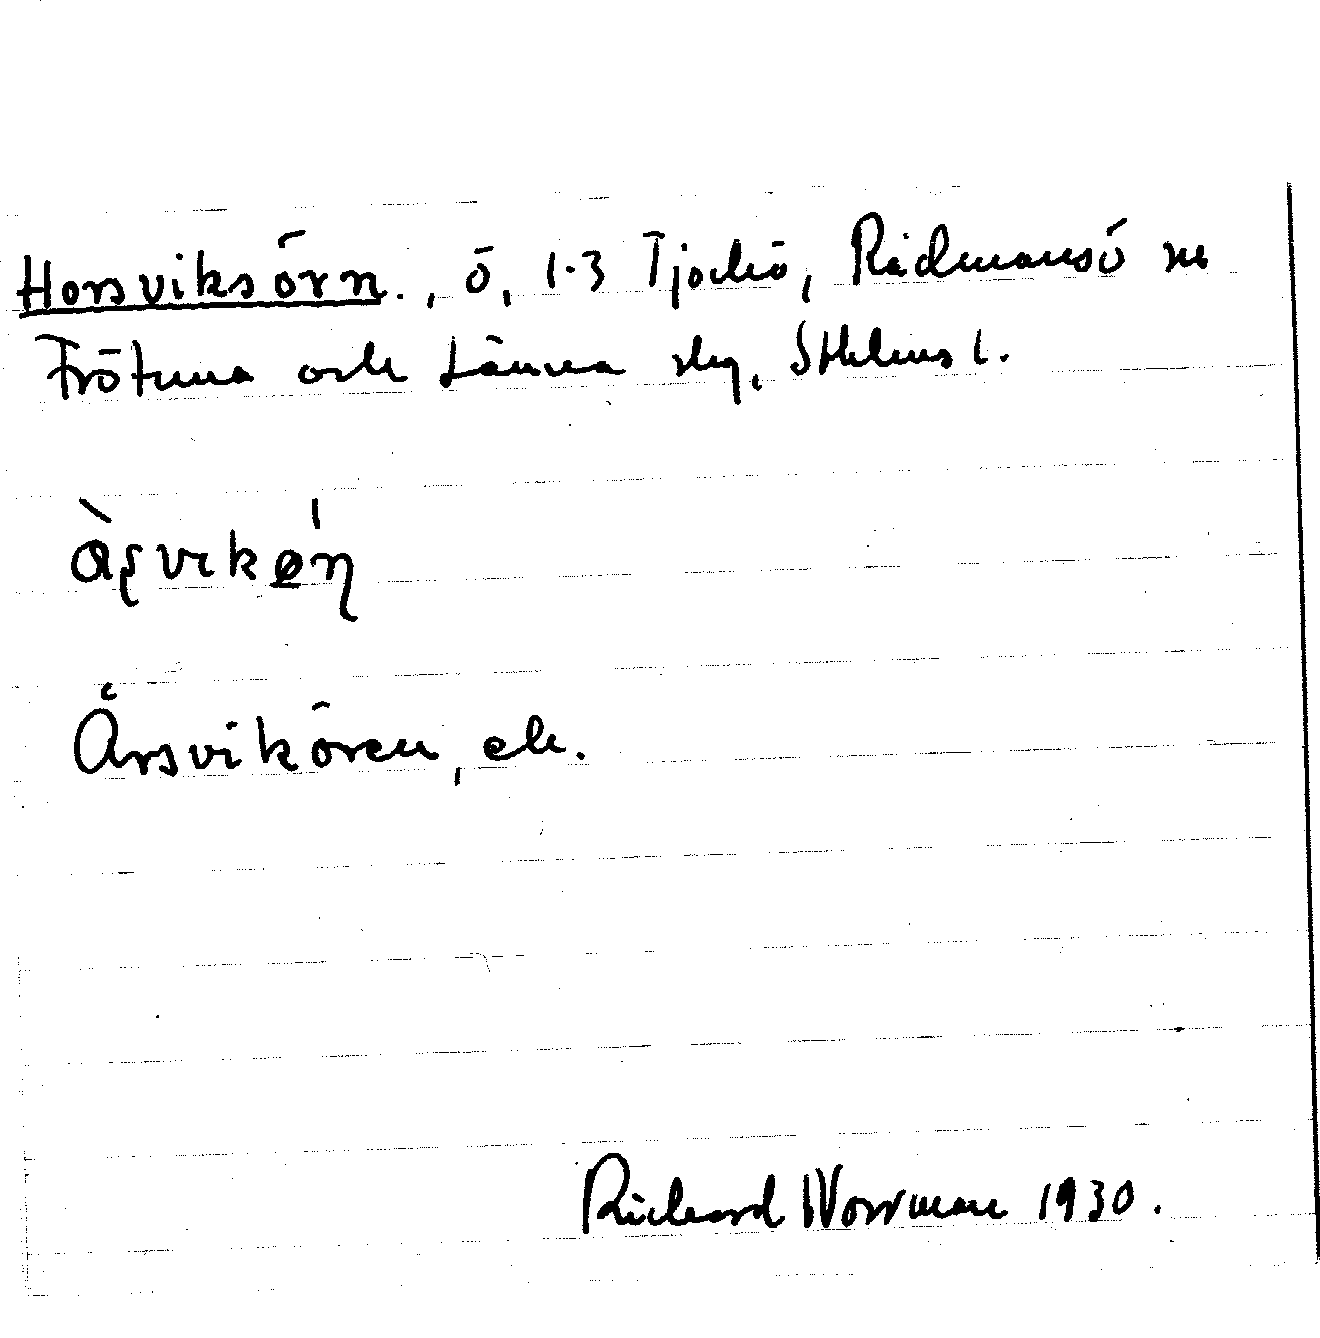 Horsviksörn., ö, 1-3 Tjockö, Rådmansö sn
Frötuna och Länna skg, Sthlms l.
Årsvikören, ek.
Richard Norrman 1930.